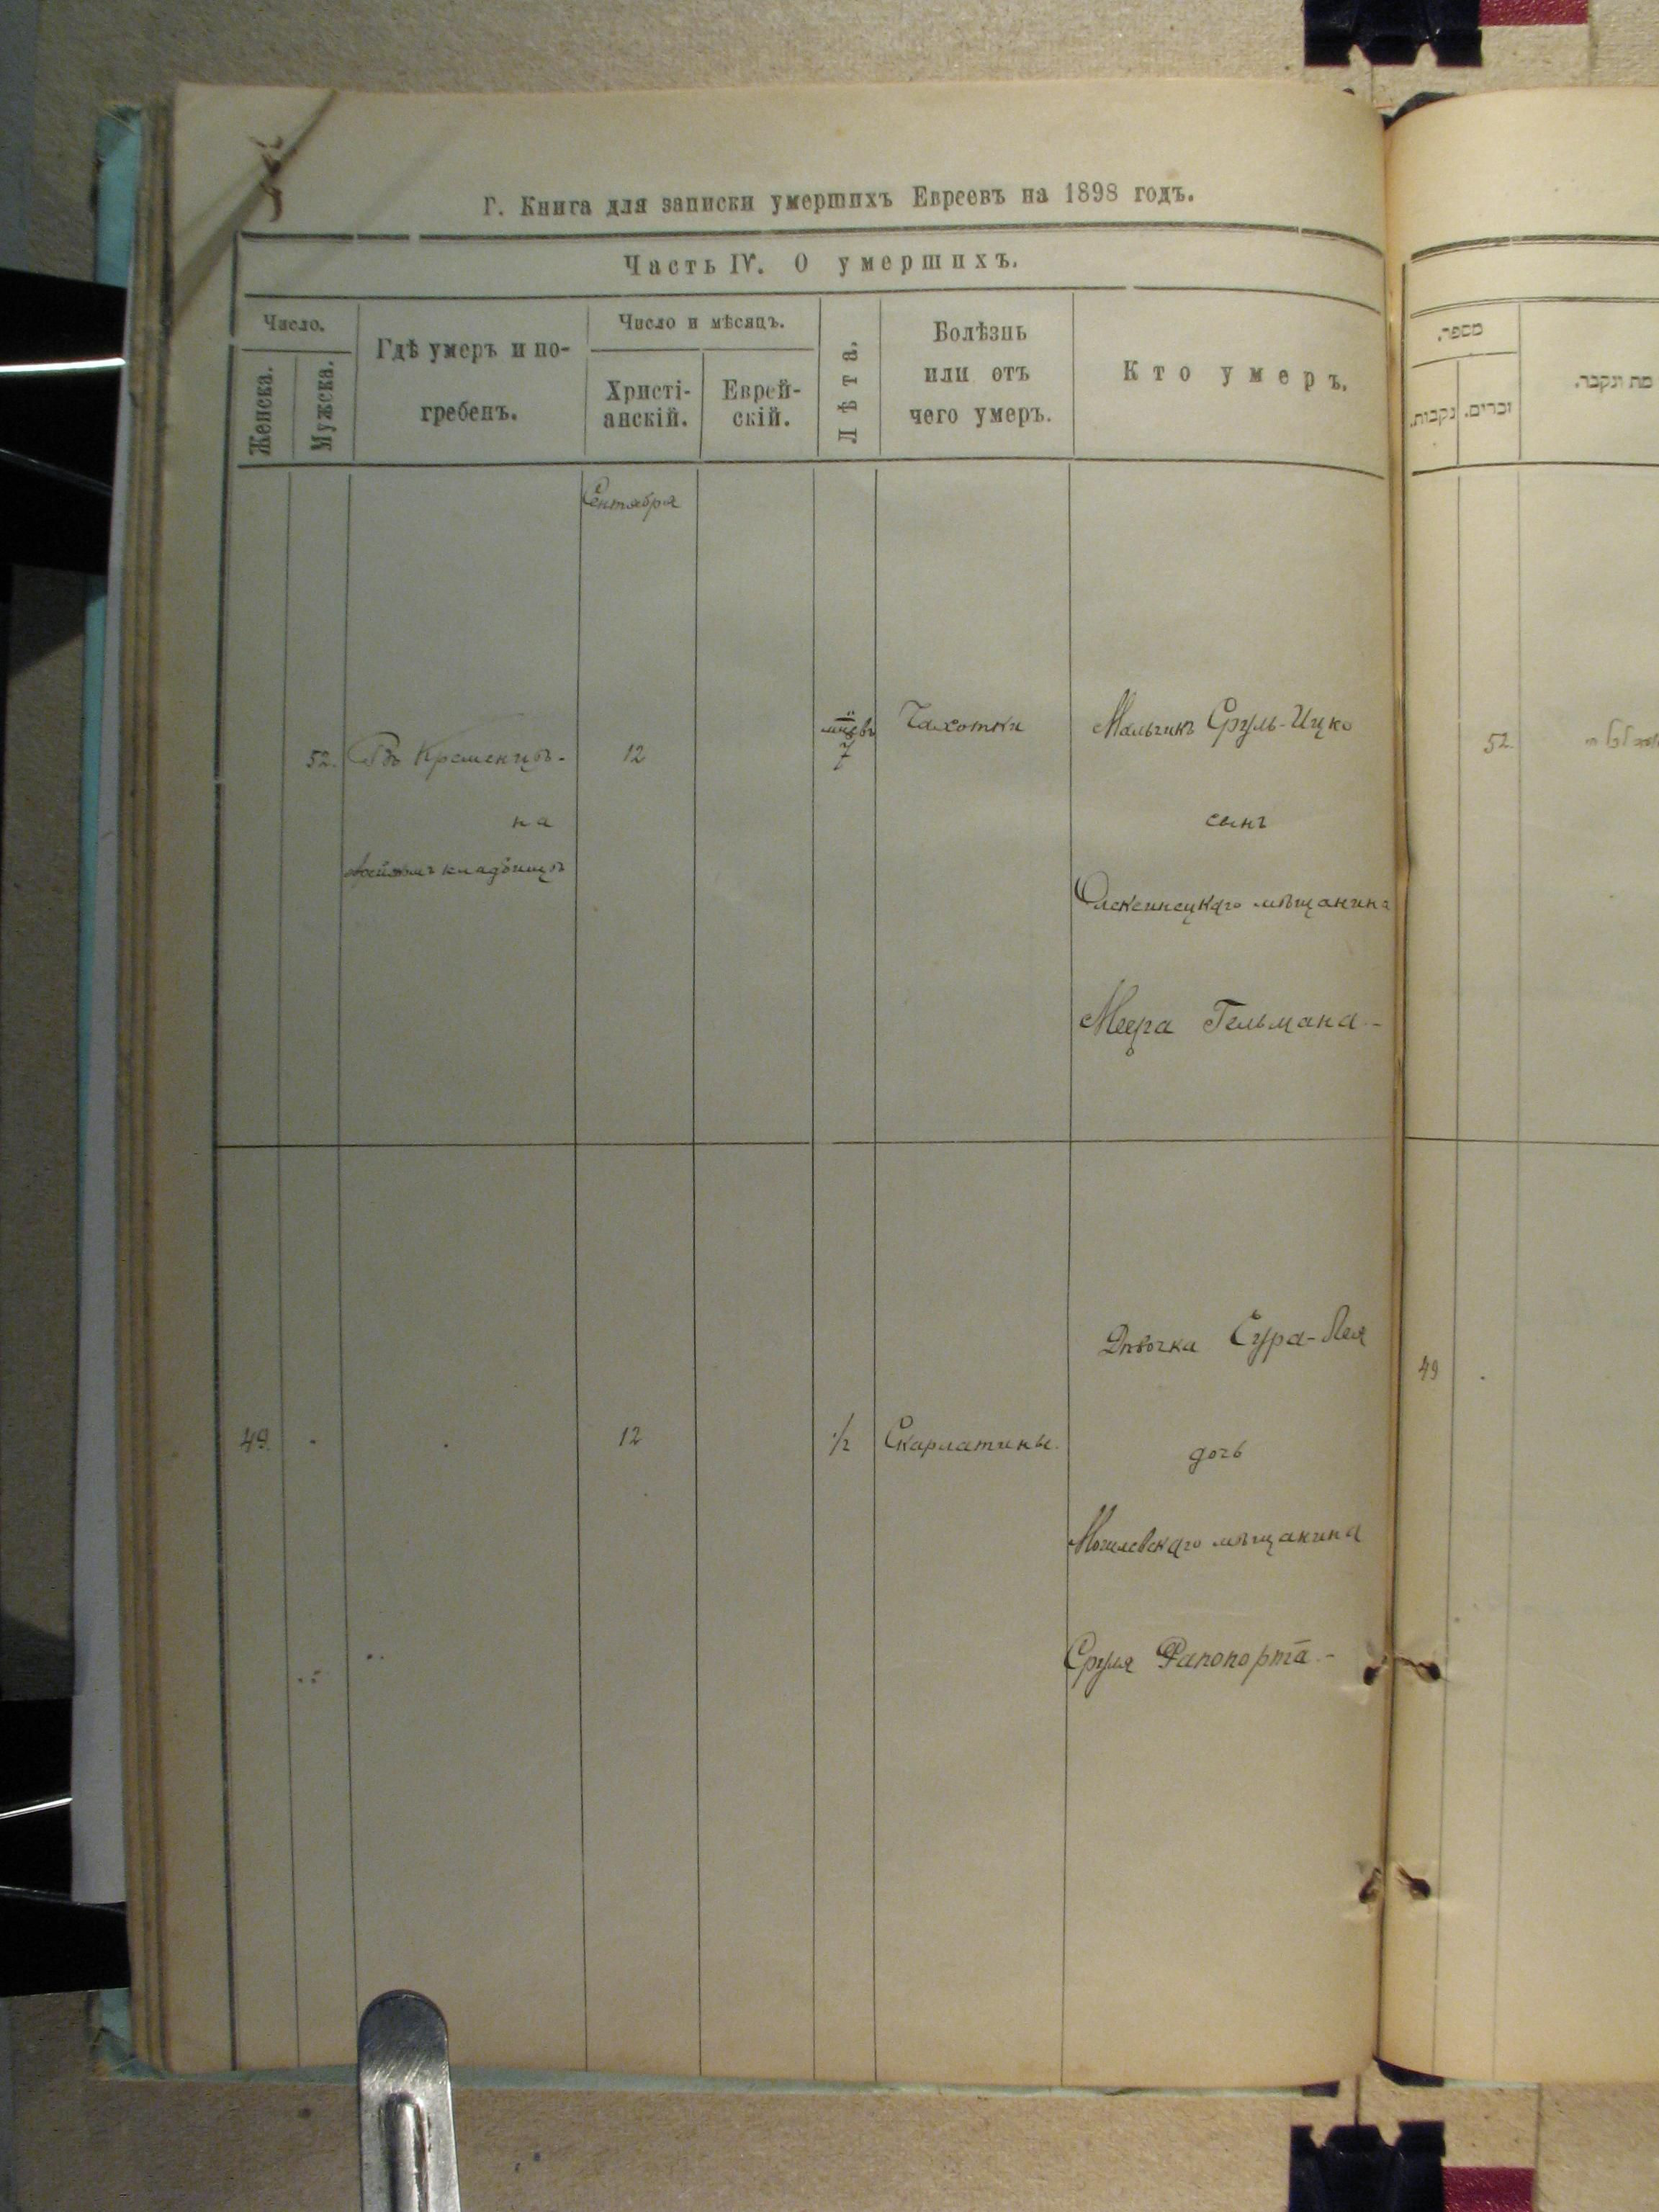 Г. Книга для записки умершихъ Евреевъ на 1898 годъ.
Часть IV. О умершихъ.
Число.
Женска.
Мужска.
Гдѣ умеръ и по-
гребенъ.
Число и мѣсяцъ.
Христі-
анскій.
Еврей-
скій.
Лѣта.
Болѣзнь
или отъ
чего умеръ.
Кто умеръ.
Сентября
52.
Въ Кременцѣ-
на
кладбищѣ
12
7
Чахотки
Мальчикъ Сруль-Ицко
сынъ
Олексинецкаго мѣщанина
Меера Гельмана-
49.
12
1/2
Скарлатины.
Дѣвочка Сура-Лея
дочь
Могилевскаго мѣщанина
Сруля Рапопорта.-
מספר.
נקבות.
זכרים.
מת ונקבר.
52.
49